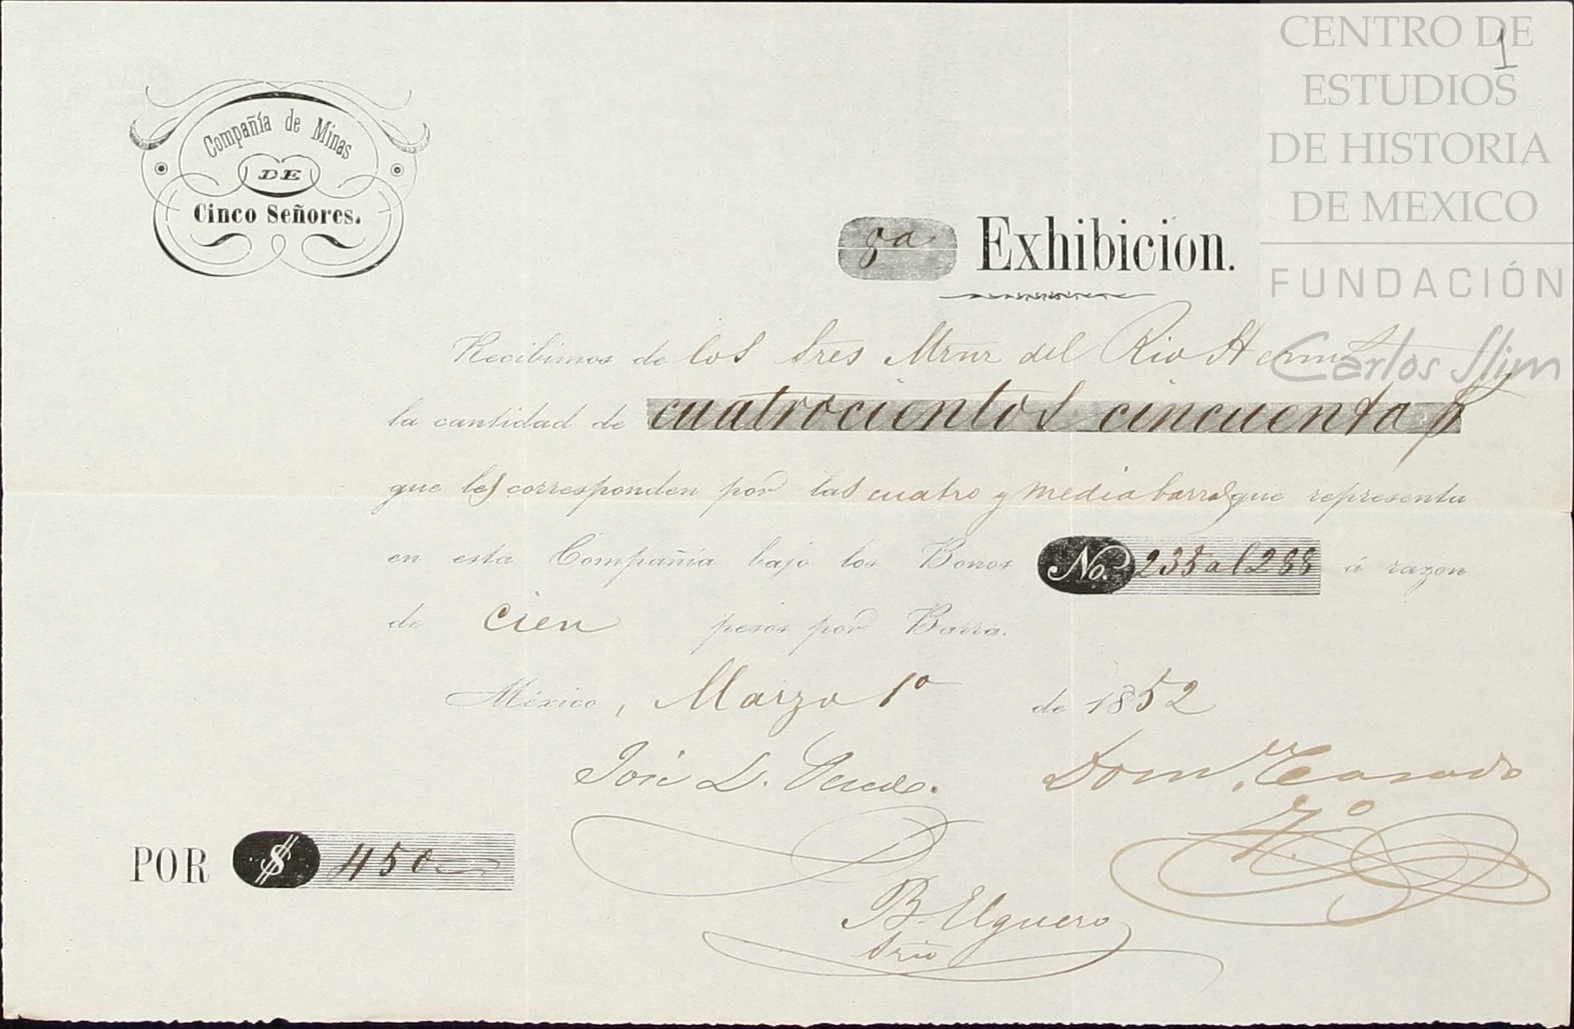 CENTRO DE
ESTUDIOS
DE HISTORIA
DE MEXICO
FUNDACIÓN
Carlos Slim
1
Compañía de Minas
DE
Cinco Señores.
8a Exhibicion.
Recibimos de los Sres del Rio Herms
la cantidad de cuatrocientos cincuenta p
que les corresponden por las cuatro y media barras que representa
en esta Compañia bajo los Bonos No. 235 al 288 á razon
de cien pesos por Barra.
México, Marzo 1o de 1852
José L. Domo.
POR $ 450
B. Elguero
Srio